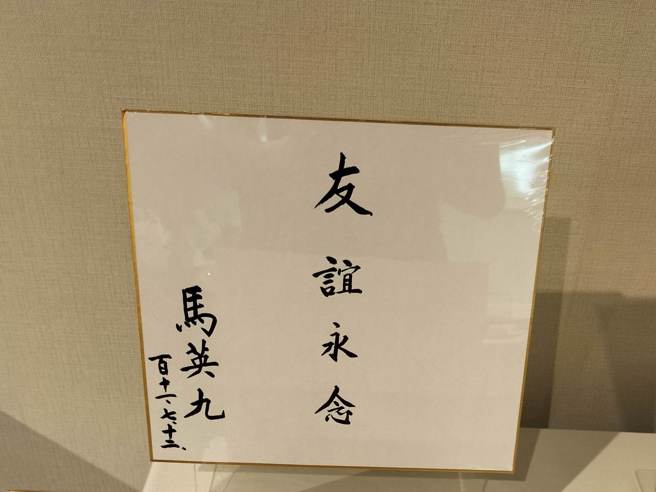 友誼永念
馬英九
百十一、七、十二、